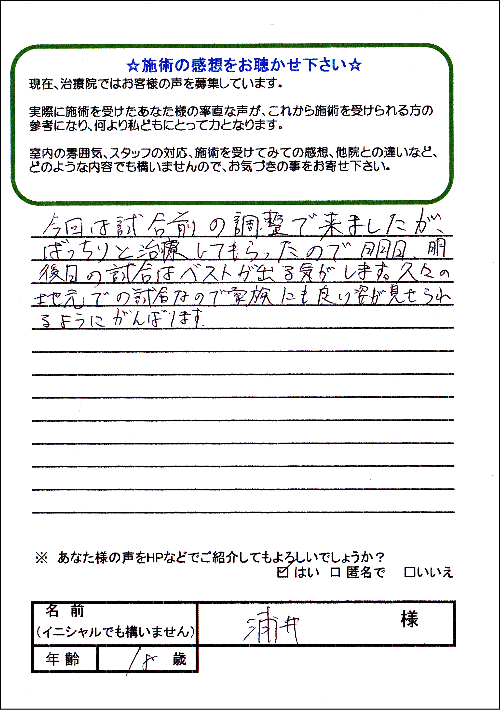 ☆施術の感想をお聴かせ下さい☆
現在、治療院ではお客様の声を募集しています。
実際に施術を受けたあなた様の率直な声が、これから施術を受けられる方の
参考になり、何より私どもにとって力となります。
室内の雰囲気、スタッフの対応、施術を受けてみての感想、他院との違いなど、
どのような内容でも構いませんので、お気づきの事をお寄せ下さい。
今回は試合前の調整で来ましたが、
ばっちりと治療してもらったので明日 明
後日の試合はベストが出る気がします。久々の
地元での試合なので家族にも良い姿が見せられ
るようにがんばります
※ あなた様の声をHPなどでご紹介してもよろしいでしょうか？
☑はい □匿名で □いいえ
名 前
(イニシャルでも構いません) 浦井 様
年 齢 18 歳